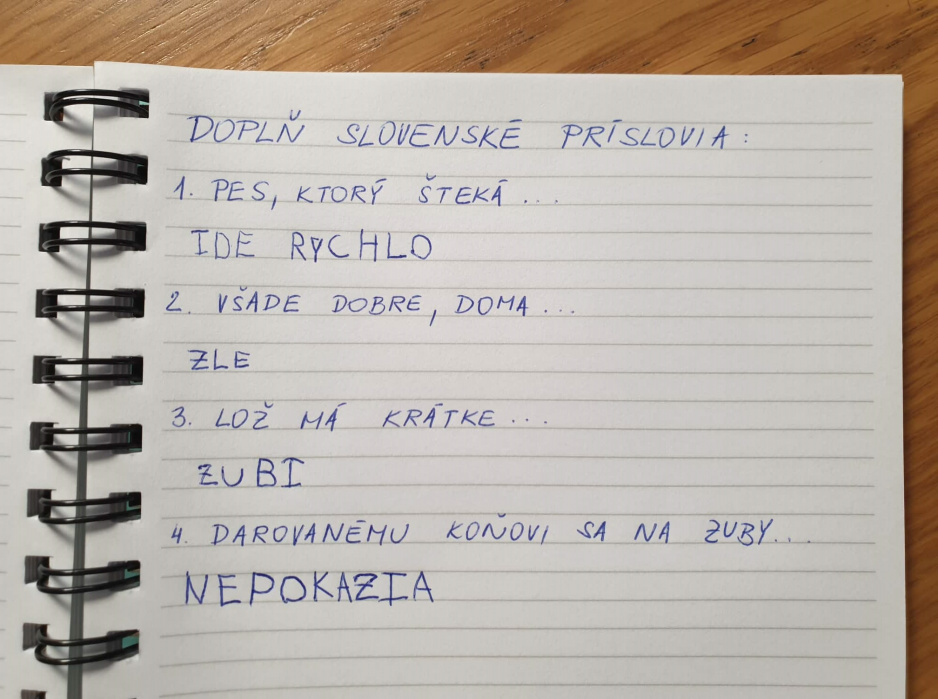 DOPLŇ SLOVENSKÉ PRÍSLOVIA:
1. PES, KTORÝ ŠTEKÁ ...
IDE RYCHLO
2. VŠADE DOBRE, DOMA ...
ZLE
3. LOŽ MÁ KRÁTKE ...
ZUBI
4. DAROVANÉMU KOŇOVI SA NA ZUBY...
NEPOKAZIA